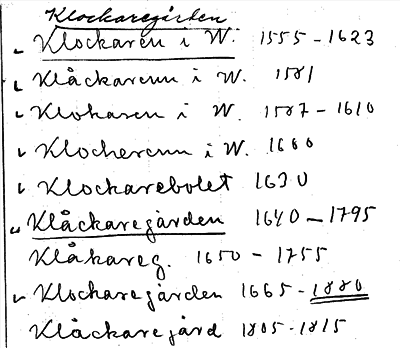 Klockaregården
Klockaren i W. 1555-1623
Klåckarenn i W. 1581
Klokaren i W. 1587-1610
Klocherenn i W. 1600
Klockarebolet 1630
Klåckaregården 1640-1795
Klåkareg. 1650-1755
Klockaregården 1665-1880
Klåckaregård 1805-1815